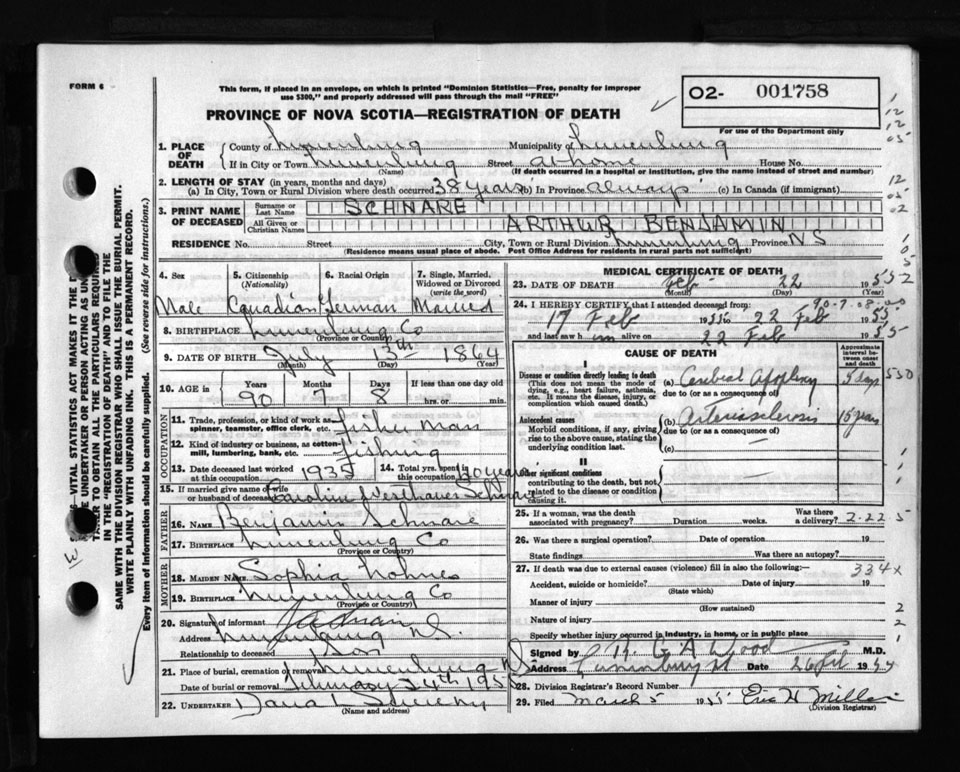 FORM 6
This form, if placed in an envelope, on which is printed "Dominion Statistics—Free, penalty for improper
use $300," and properly addressed will pass through the mail "FREE"
O2- 001758
For use of the Department only
PROVINCE OF NOVA SCOTIA—REGISTRATION OF DEATH
1. PLACE OF DEATH
County of Lunenburg Municipality of Lunenburg
If in City or Town Lunenburg Street at home House No.
(Name) (If death occurred in a hospital or institution, give its name instead of street and number)
2. LENGTH OF STAY (in years, months and days)
(a) In City, Town or Rural Division where death occurred 38 years (b) In Province always (c) In Canada (if immigrant)
3. PRINT NAME OF DECEASED
Surname or Last Name SCHNARE
All Given or Christian Names ARTHUR BENJAMIN
RESIDENCE No. Street City, Town or Rural Division Lunenburg Province N S
(Residence means usual place of abode. Post Office Address for residents in rural parts not sufficient)
4. Sex Male
5. Citizenship (Nationality) Canadian
6. Racial Origin German
7. Single, Married, Widowed or Divorced (write the word) Married
8. BIRTHPLACE Lunenburg Co
(Province or Country)
9. DATE OF BIRTH July 13th 1864
(Month) (Day) (Year)
10. AGE in Years Months Days If less than one day old
90 7 8 hrs. or min.
OCCUPATION
11. Trade, profession, or kind of work as spinner, teamster, office clerk, etc. fisher man
12. Kind of industry or business, as cotton-mill, lumbering, bank, etc. fishing
13. Date deceased last worked at this occupation 1935
14. Total yrs. spent in this occupation years
15. If married give name of wife or husband of deceased Caroline Schnare
FATHER
16. NAME Benjamin Schnare
17. BIRTHPLACE Lunenburg Co
(Province or Country)
MOTHER
18. MAIDEN NAME Sophia Lohnes
19. BIRTHPLACE Lunenburg Co
(Province or Country)
20. Signature of informant
Address Lunenburg N.S.
Relationship to deceased Son
21. Place of burial, cremation or removal Lunenburg NS
Date of burial or removal February 24th 1955
22. UNDERTAKER Dana L Sweeny
(Name and address)
MEDICAL CERTIFICATE OF DEATH
23. DATE OF DEATH Feb 22 1955
(Month) (Day) (Year)
24. I HEREBY CERTIFY that I attended deceased from:
90-7-08-00
17 Feb 1955 to 22 Feb 1955
and last saw h im alive on 22 Feb 1955
CAUSE OF DEATH
Approximate interval between onset and death
I
Disease or condition directly leading to death
(This does not mean the mode of dying, e.g., heart failure, asthenia, etc. It means the disease, injury, or complication which caused death.)
(a) Cerebral Apoplexy 5 days
due to (or as a consequence of)
Antecedent causes
Morbid conditions, if any, giving rise to the above cause, stating the underlying condition last.
(b) Arteriosclerosis 15 years
due to (or as a consequence of)
(c)
II
Other significant conditions
contributing to the death, but not related to the disease or condition causing it.
25. If a woman, was the death associated with pregnancy? Duration weeks. Was there a delivery? 2-22 5
26. Was there a surgical operation? Date of operation 19
State findings Was there an autopsy?
27. If death was due to external causes (violence) fill in also the following:— 334x
Accident, suicide or homicide? Date of injury 19
(State which)
Manner of injury
(How sustained)
Nature of injury
Specify whether injury occurred in industry, in home, or in public place
Signed by R. G A Wood M.D.
Address Lunenburg Date 1955
28. Division Registrar's Record Number
29. Filed March 5 1955 Eric H Miller
(Division Registrar)
TO OBTAIN ALL THE PARTICULARS REQUIRED
IN THE "REGISTRATION OF DEATH" AND TO FILE THE
SAME WITH THE DIVISION REGISTRAR WHO SHALL ISSUE THE BURIAL PERMIT.
WRITE PLAINLY WITH UNFADING INK. THIS IS A PERMANENT RECORD.
Every item of information should be carefully supplied. (See reverse side for instructions.)